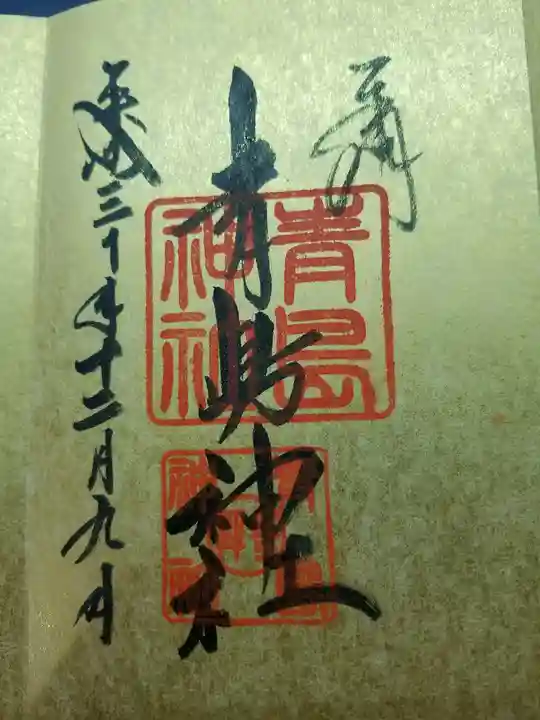 奉拝
青島神社
青島神社
平成三十年十二月九日